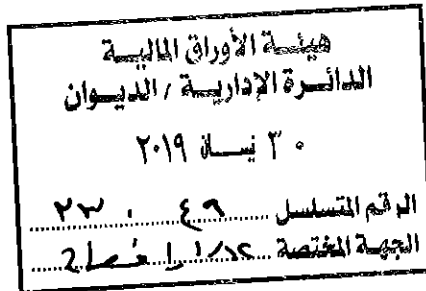 هيئة الأوراق المالية
الدائرة الإدارية / الديوان
٣٠ نيسان ٢٠١٩
الرقم المتسلسل ٤٩ ٢٣٠
الجهة المختصة ا فصاح